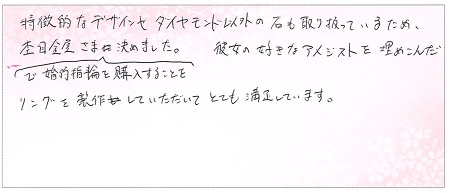 特徴的なデザインやダイヤモンド以外の石も取り扱っているため、
杢目金屋さまに決めました。 彼女の好きなアメジストを埋めこんだ
で婚約指輪を購入することを
リングを製作していただいてとても満足しています。